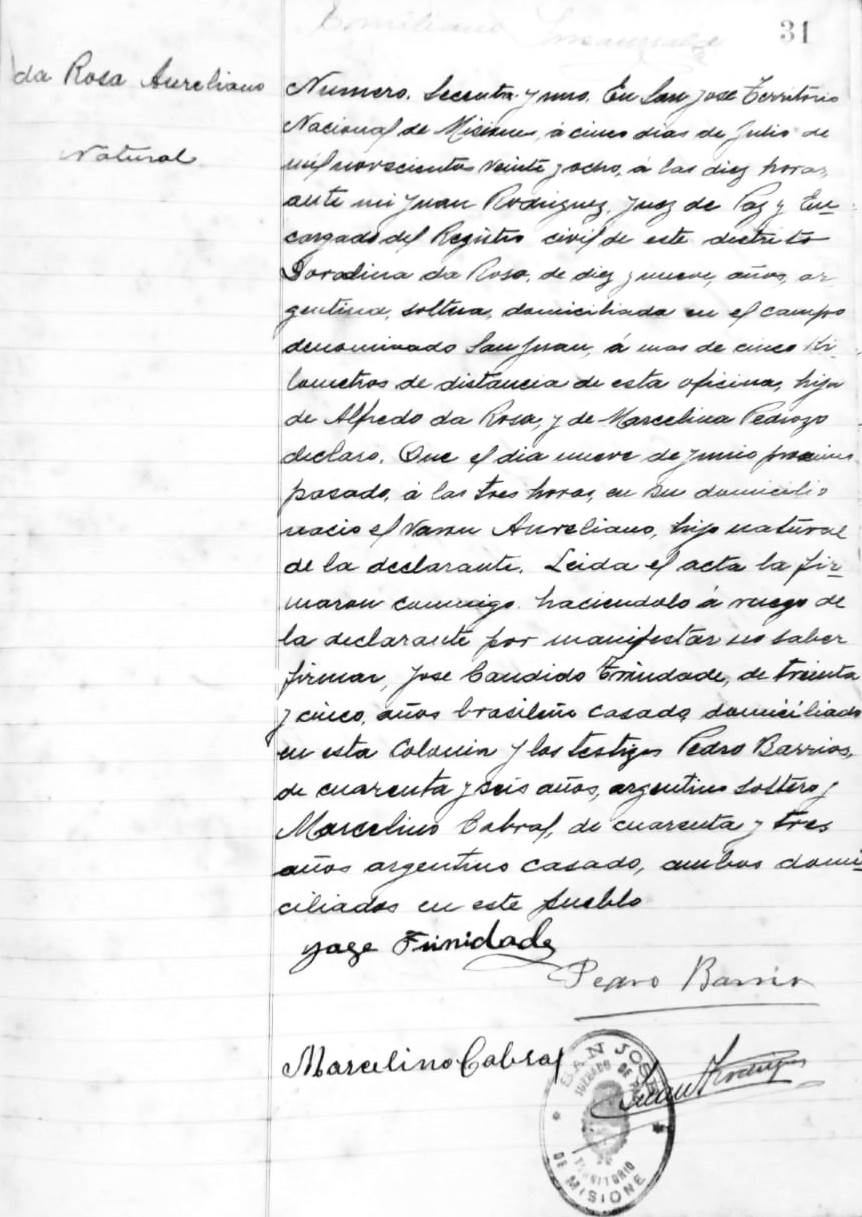 31
da Rosa Aureliano
Natural
Numero. Secenta y uno. En San Jose Territorio
Nacional de Misiones, á cinco dias de Julio de
mil novecientos veinte y ocho, á las diez horas,
ante mi Juan Rodriguez, Juez de Paz y En-
cargado del Registro civil de este distrito
Doralina da Rosa, de diez y nueve, años, ar-
gentina, soltera, domiciliada en el campo
denominado San Juan, á mas de cinco Ki-
lometros de distancia de esta oficina, hija
de Alfredo da Rosa, y de Marcelina Pedrozo
declaro. Que el dia nueve de Junio proximo
pasado, á las tres horas, en su domicilio
nacio el Varon Aureliano, hijo natural
de la declarante. Leida el acta la fir-
maron conmigo haciendolo á ruego de
la declarante por manifestar no saber
firmar, Jose Candido Trindade, de treinta
y cinco, años brasileño casado, domiciliado
en esta Colonia y los testigos Pedro Barrios,
de cuarenta y seis años, argentino soltero y
Marcelino Cabral, de cuarenta y tres
años argentino casado, ambos domi-
ciliados en este pueblo
Pedro Barrio
Marcelino Cabral
Juan Rodriguez
SAN JOSE
JUZGADO DE PAZ
TERRITORIO
DE MISIONE